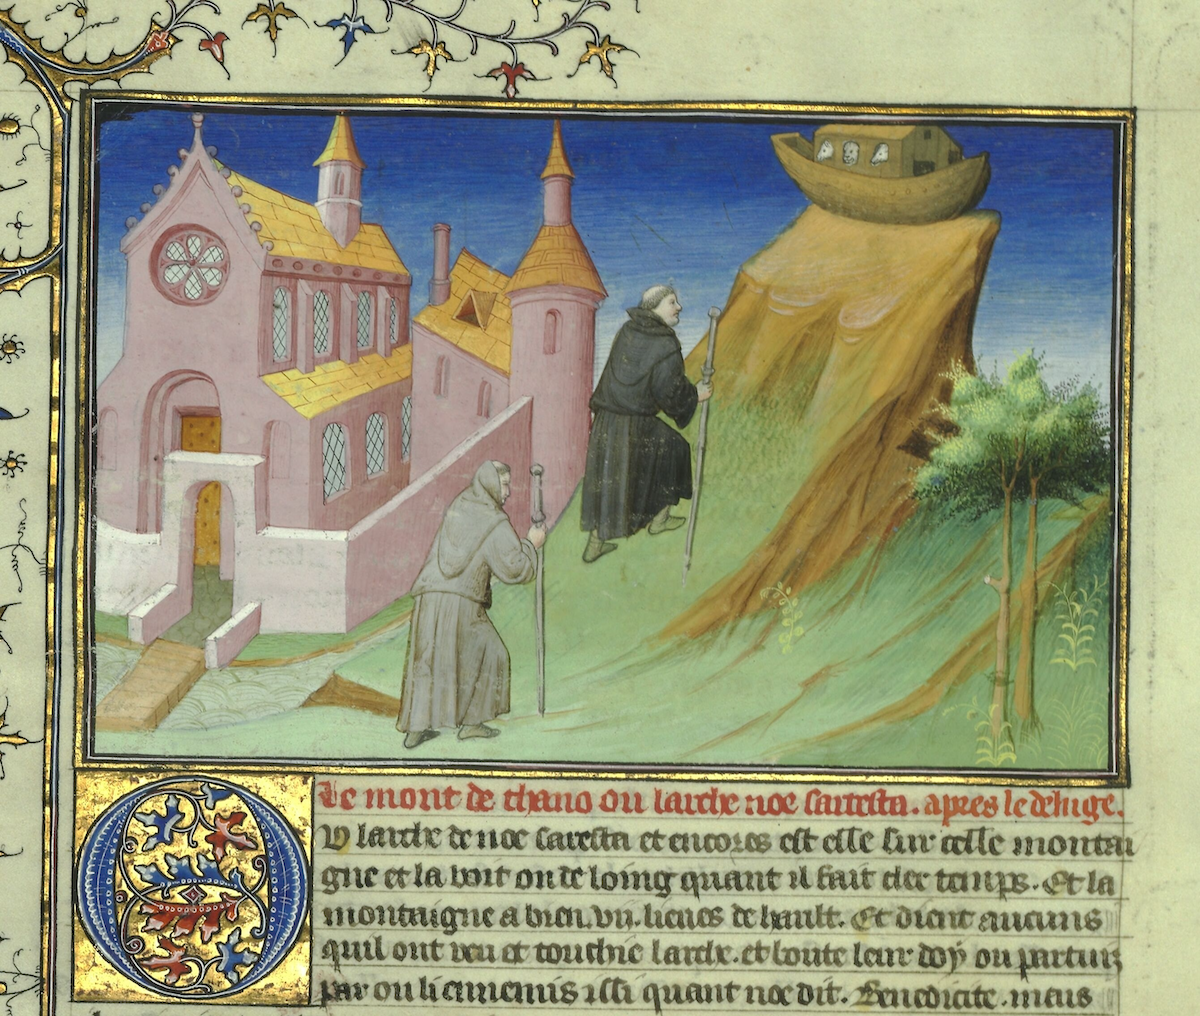 Le mont de chano ou larche noe saresta. apres le deluge.
OU larche de noe saresta et encores est elle sur celle montai
gne et la voit on de loing quant il fait cler temps. Et la
montaigne a bien .vii. lieues de hault. Et dient aucuns
quil ont veu et touchie larche. et boute leur doy ou partuiz
par ou li ennemis issi quant noe dit. Benedicite. mais